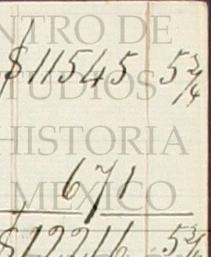 NTRO DE
$11545 5 3/4
TUDIOS
HISTORIA
671
MEXICO
$12216 5 3/4